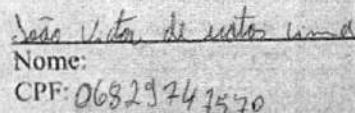 João Victor de matos Lima
Nome:
CPF: 06829747570